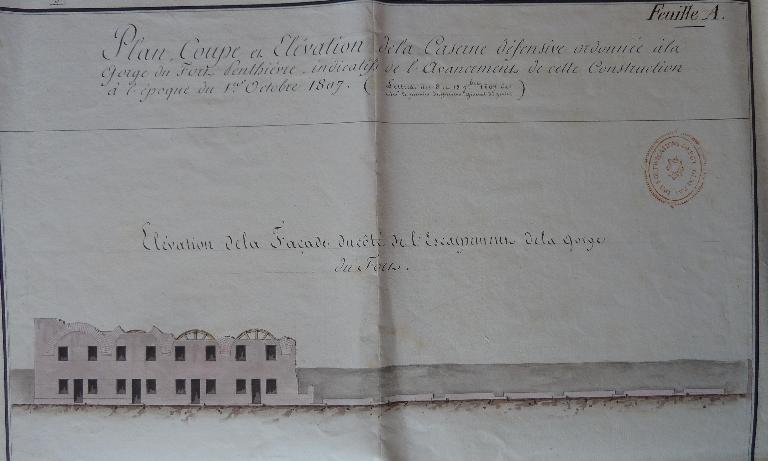 Feuille A.
Plan, Coupe et Elévation de la Caserne défensive ordonnée à la
Gorge du Fort Penthièvre, indicatifs de l'Avancement de cette Construction
à l'époque du 1er Octobre 1807.
Elévation de la Façade du côté de l'Escarpement de la Gorge
du Fort.